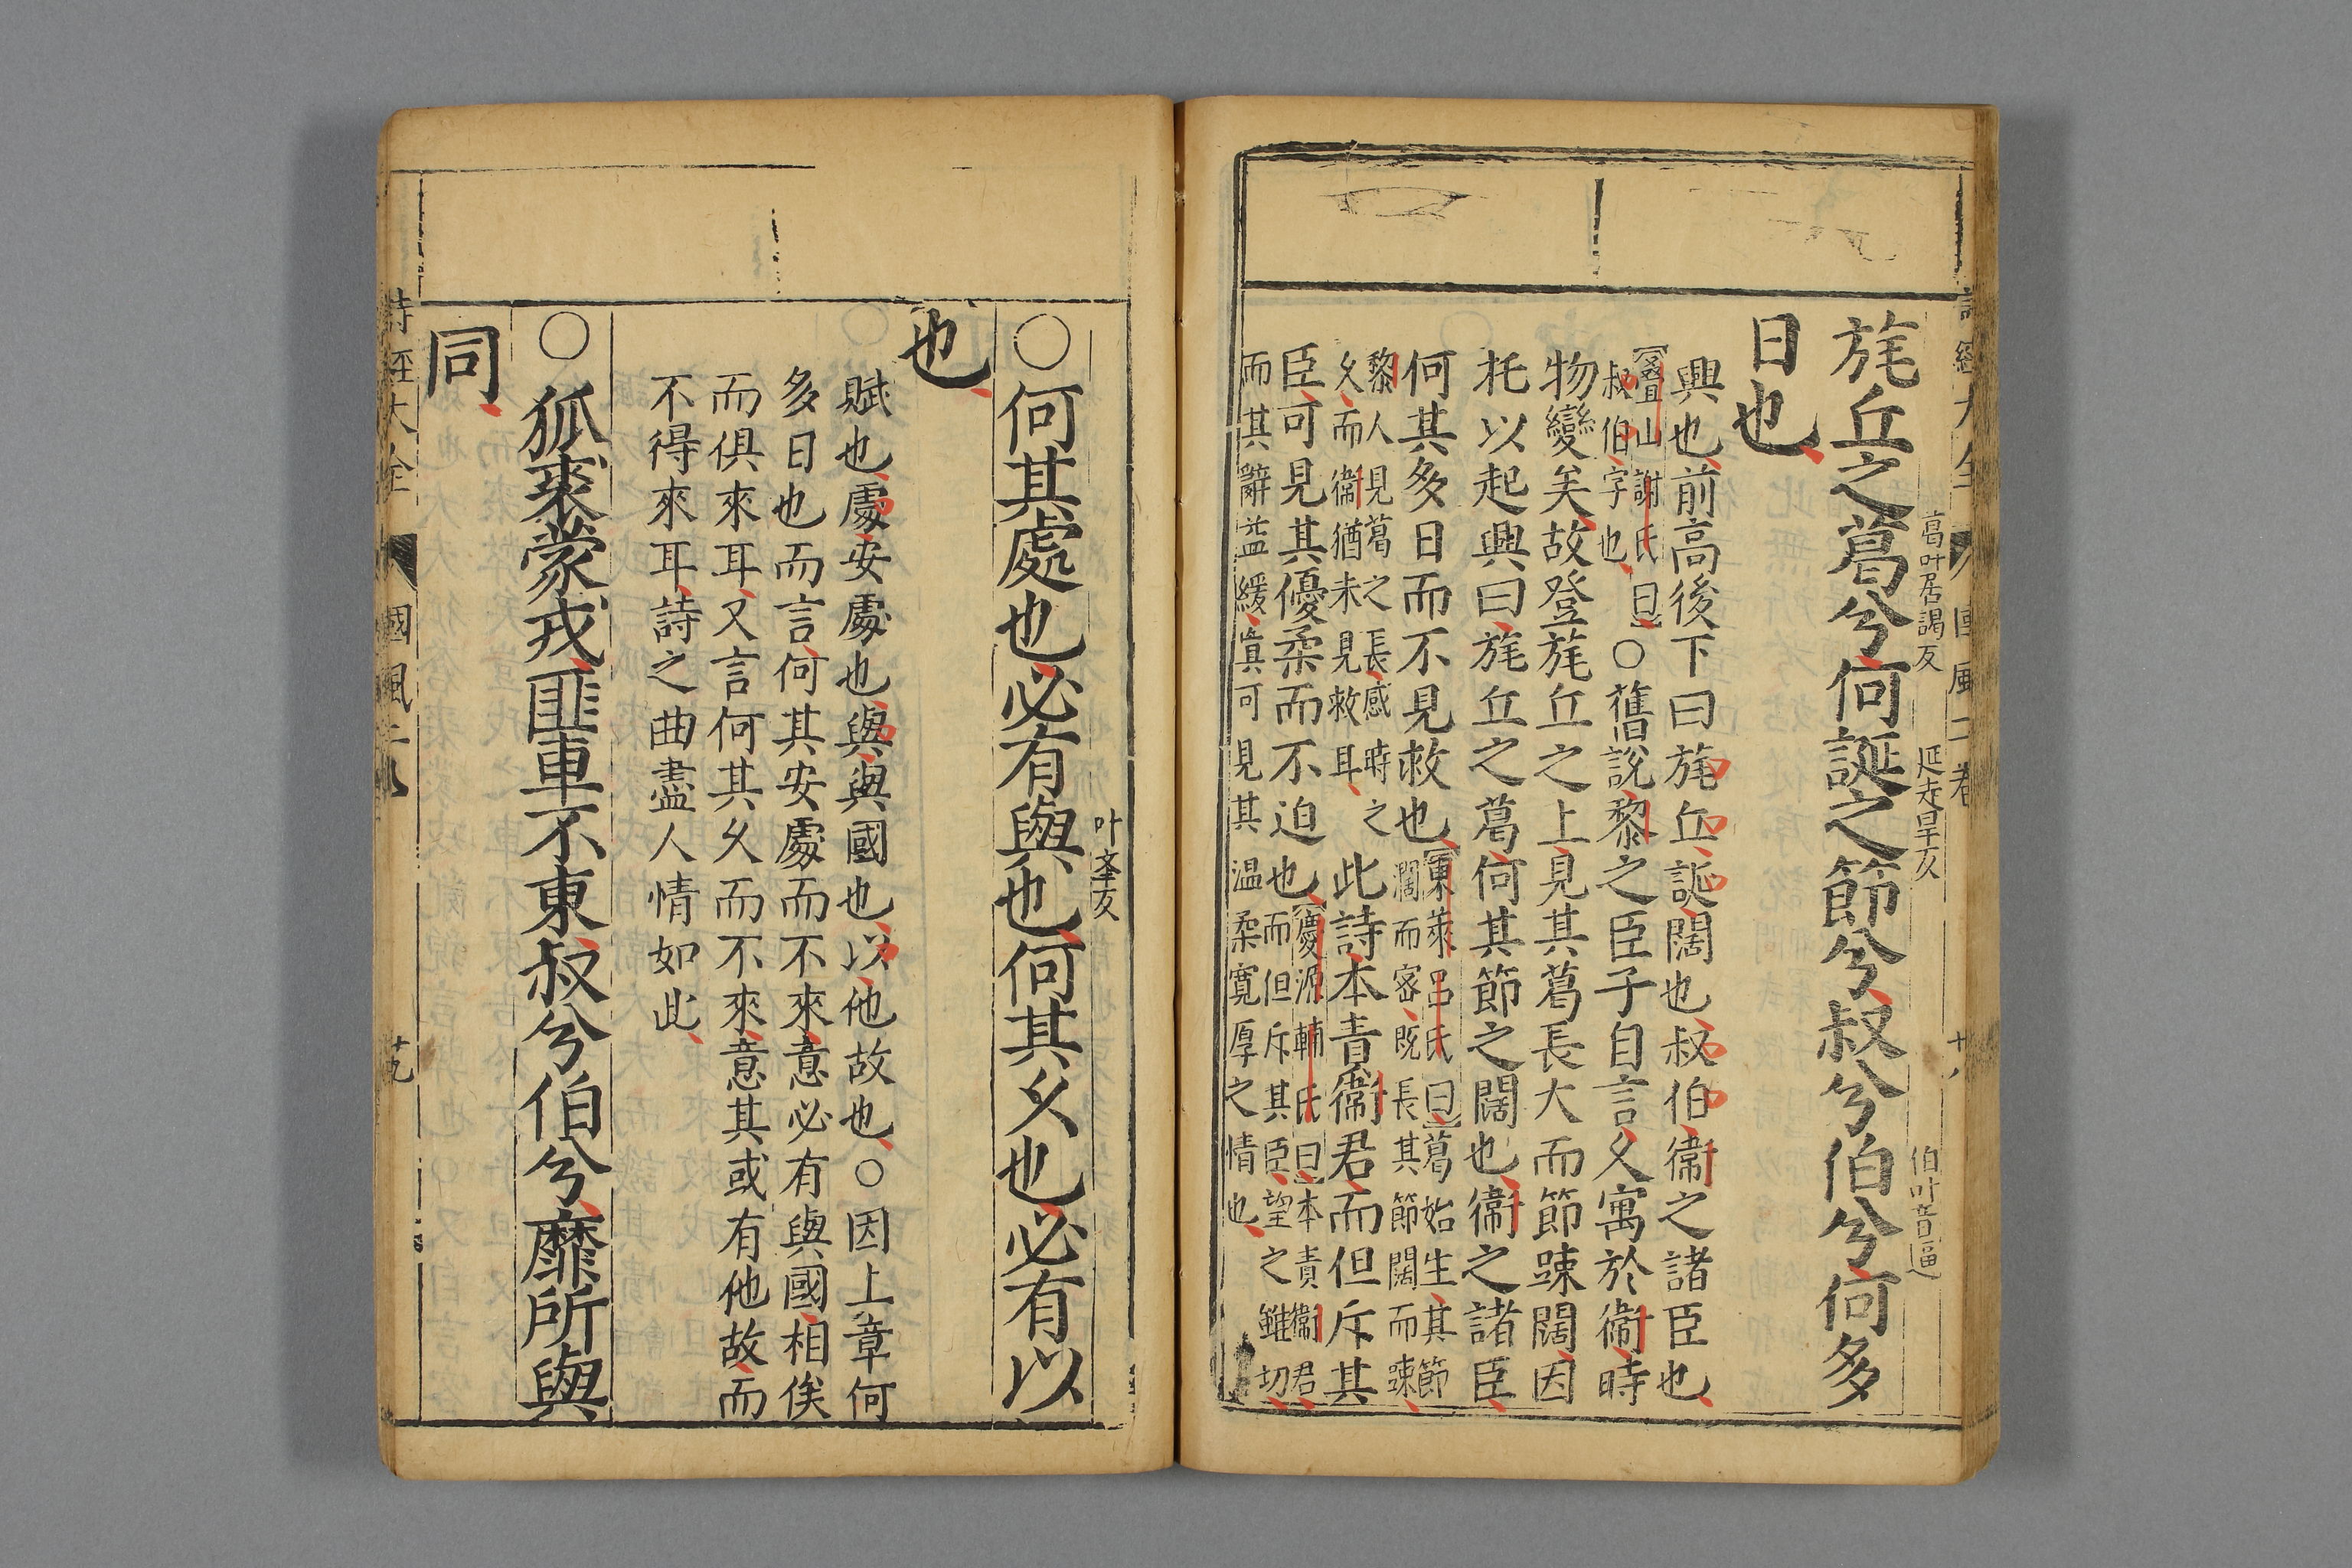 葛叶居謁反
延走旱反
伯叶音逼
旄丘之葛兮何誕之節兮叔兮伯兮何多
日也
興也前高後下曰旄丘誕闊也叔伯衞之諸臣也
疊山謝氏曰
叔伯字也
○舊說黎之臣子自言久寓於衞時
物變矣故登旄丘之上見其葛長大而節踈闊因
托以起興曰旄丘之葛何其節之闊也衞之諸臣
何其多日而不見救也
東萊呂氏曰葛始生其節
濶而密既長其節闊而踈
黎人見葛之長感時之
久而衞猶未見救耳
此詩本責衞君而但斥其
臣可見其優柔而不迫也
慶源輔氏曰本責衞君
而但斥其臣望之雖切
而其辭益緩眞可見其温柔寛厚之情也
叶音
○何其處也必有與也何其久也必有以
也
賦也處安處也與與國也以他故也○因上章何
多日也而言何其安處而不來意必有與國相俟
而俱來耳又言何其久而不來意其或有他故而
不得來耳詩之曲盡人情如此
○狐裘蒙戎匪車不東叔兮伯兮靡所與
同
詩經大全
國風二